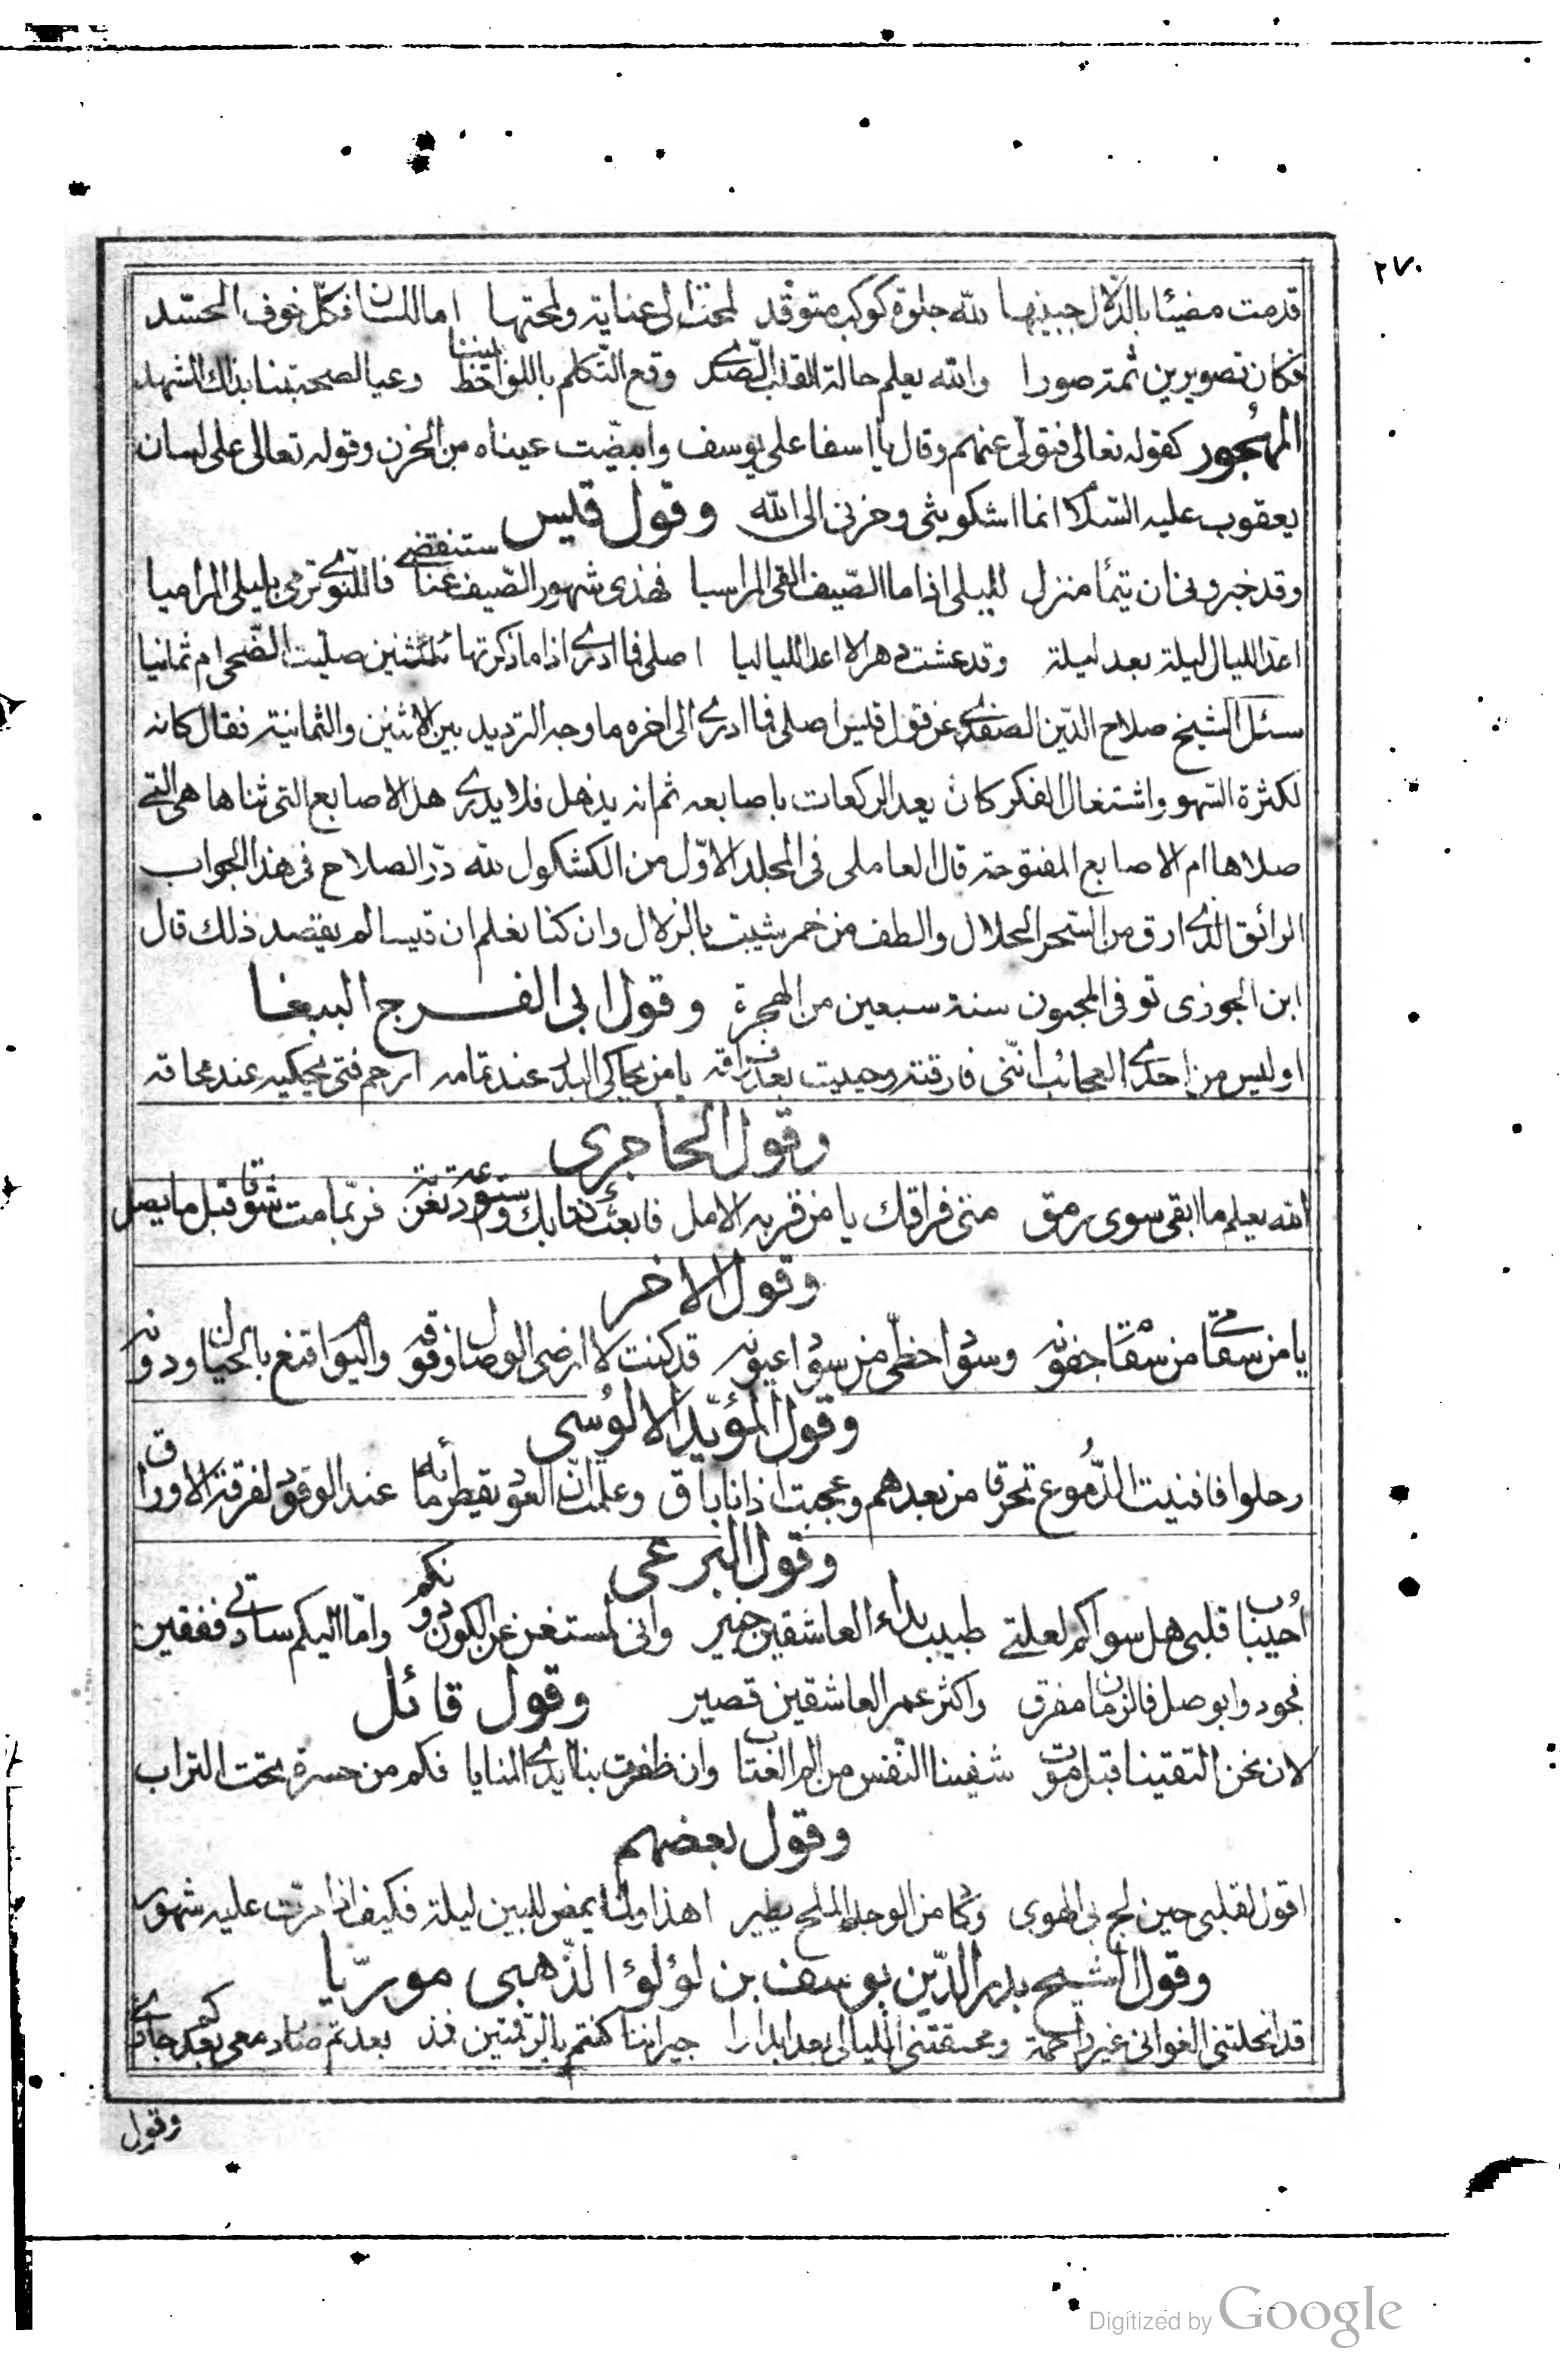 ٢٧٠
قدمت مضيئا بالدلال جبينها لله جلوة كوكب متوقد لمحت الى عناية ولمحتها اما اللسان فكل خوف الحسد
فكان تصويرين ثمة صورا والله يعلم حالة القلب الصدى وقع التكلم باللواحظ بيننا وعيا لصحبتنا بذاك المشهد
المهجور كقوله تعالى فتولى عنهم وقال يا اسفا على يوسف وابيضت عيناه من الحزن وقوله تعالى على لسان
يعقوب عليه السلام انما اشكو بثى وحزنى الى الله وقول قيس
وقد خبرونى ان تيمأ منزل لليلى اذا ما الصيف القى المراسيا فهذى شهور الصيف عنا ستنقضى فما للنوى ترمى بليلى المراميا
اعد الليال ليلة بعد ليلة وقد عشت دهرا لا اعد اللياليا اصلى فما ادرى اذا ما ذكرتها ءاثنتين صليت الضحى ام ثمانيا
سئل الشيخ صلاح الدين الصفدى عن قول قيس اصلى فما ادرى الى اخره ما وجه الترديد بين الاثنين والثمانية فقال كانه
لكثرة السهو واشتغال الفكر كان يعد الركعات باصابعه ثم انه يذهل فلا يدرى هل الاصابع التى ثناها هى التى
صلاها ام الاصابع المفتوحة قال العاملى فى المجلد الاول من الكشكول لله در الصلاح فى هذا الجواب
الرائق الذى ارق من السحر الحلال والطف من خمر شيبت بالزلال وان كنا نعلم ان قيسا لم يقصد ذلك قال
ابن الجوزى توفى المجنون سنة سبعين من الهجرة وقول ابى الفرج الببغا
اوليس من احدى العجائب اننى فارقته وحييت بعد فراقه يا من يحاكى البدر عند تمامه ارحم فتى يحكيه عند محاقه
وقول الحاجرى
الله يعلم ما ابقى سوى رمق منى فراقك يا من قربه الامل فابعث كتابك واستودعه تعزية فربما مت شوقا قبل ما يصل
وقول الاخر
يا من سقامى من سقام جفونه وسواد حظى من سواد عيونه قد كنت لا ارضى الوصال وفوقه واليوم اقنع بالخيال ودونه
وقول المؤيد الالوسى
رحلوا فافنيت الدموع تحرقا من بعدهم وعجبت اذ انا باق وعلمت ان العود يقطر مأه عند الوقود لفرقة الاوراق
وقول البرعى
أحباب قلبى هل سواكم لعلتى طبيب بداء العاشقين خبير وانى لمستغن عن الكون دونكم واما اليكم سادتى ففقير
فجودوا بوصل فالزمان مفرق واكثر عمر العاشقين قصير وقول قائل
لان نحن التقينا قبل موت شفينا النفس من الم العتاب وان ظفرت بنا ايدى المنايا فكم من حسرة تحت التراب
وقول بعضهم
اقول لقلبى حين لج بى الهوى وكاد من الوجد الملح يطير اهذا ولما يمض للبين ليلة فكيف اذا مرت عليه شهور
وقول الشيخ بدر الدين يوسف بن لؤلؤ الذهبى موريا
قد انحلتنى الغوانى غير راحمة ومحقتنى الليالى بعد ابدارا جيراننا كنتم بالرقمتين فمذ بعدتم صار دمعى بعدكم جارى
وقول
Digitized by Google